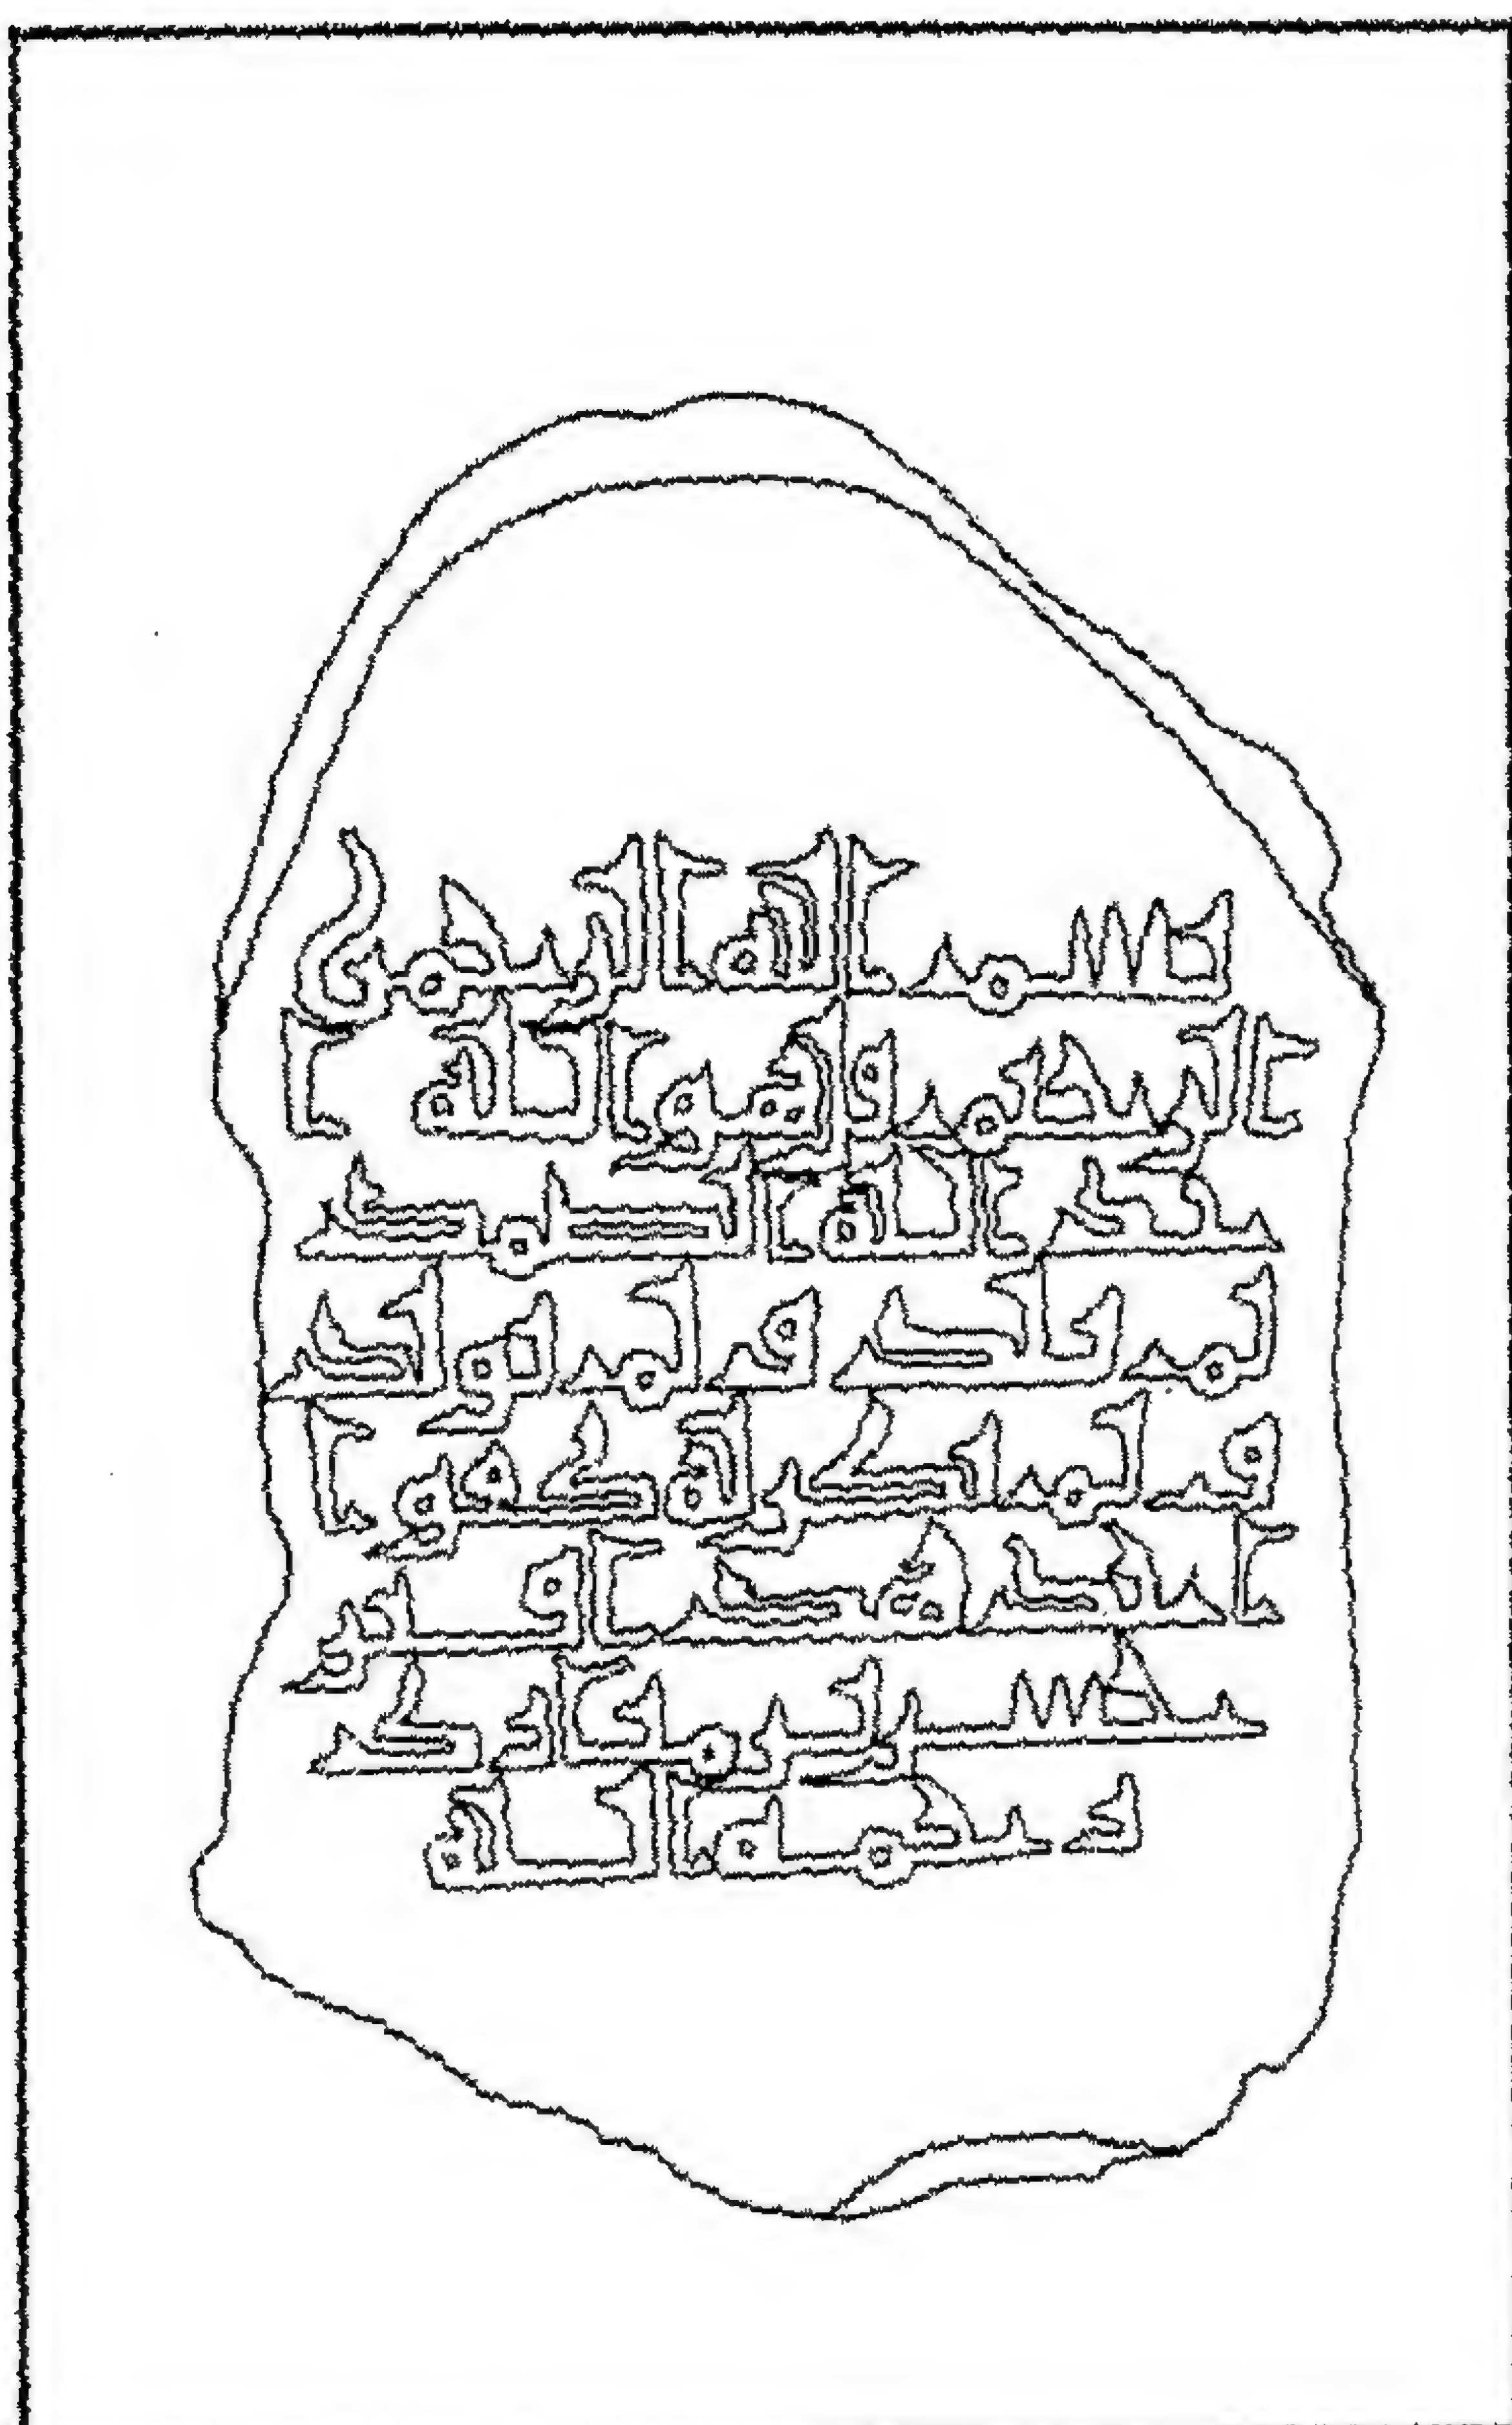 بسم الله الرحمن
الرحيم قل هو الله ا
حد الله الصمد
لم يلد ولم يولد
ولم يكن له كفوا
احد هذا قبر
رحمه الله